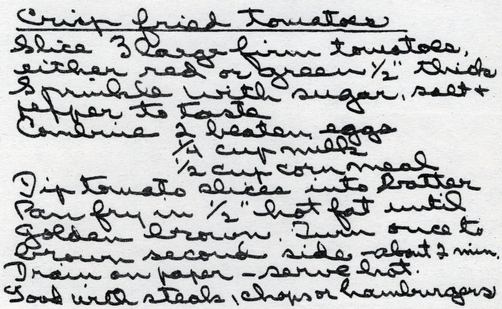 Crisp fried tomatoes
Slice 3 large firm tomatoes,
either red or green 1/2" thick
Sprinkle with sugar, salt +
pepper to taste
Combine 2 beaten eggs
1/4 cup milk
1/2 cup corn meal
Dip tomato slices into batter
Pan fry in 1/2" hot fat until
golden brown. Turn once to
brown second side - about 2 min.
Drain on paper - serve hot.
Good with steak, chops or hamburgers